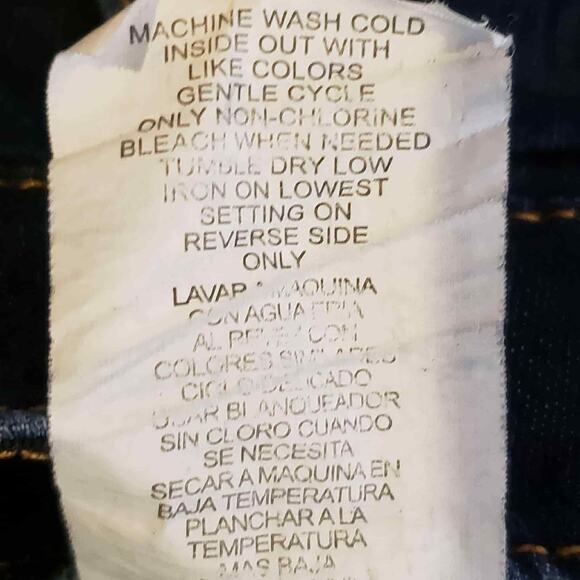 MACHINE WASH COLD
INSIDE OUT WITH
LIKE COLORS
GENTLE CYCLE
ONLY NON-CHLORINE
BLEACH WHEN NEEDED
TUMBLE DRY LOW
IRON ON LOWEST
SETTING ON
REVERSE SIDE
ONLY
LAVAR MAQUINA
CON AGUA FRIA
AL REVEZ CON
COLORES SIMILARES
CICLO DELICADO
USAR BLANQUEADOR
SIN CLORO CUANDO
SE NECESITA
SECAR A MAQUINA EN
BAJA TEMPERATURA
PLANCHAR A LA
TEMPERATURA
MAS BAJA